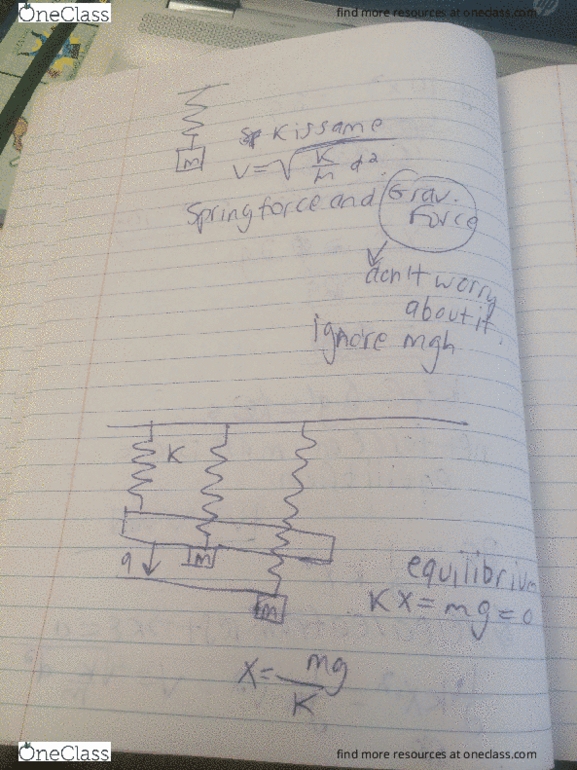 OneClass
find more resources at oneclass.com
K is same
m
V = √ K/m d².
Spring force and Grav. Force
don't worry
about it.
ignore mgh
K
q
m
m
equilibrium
KX = mg = 0
X = mg/K
OneClass
find more resources at oneclass.com